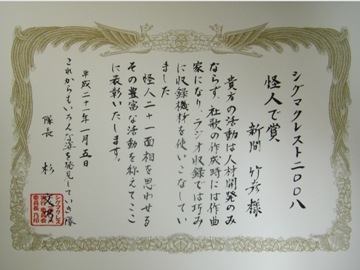 シグマクレスト二〇〇八
怪人で賞
新聞 竹彦 様
貴方の活動は人材開発のみ
ならず、社歌の作成時には作曲
家になり、ラジオ収録では巧み
に収録機材を使いこなしてい
ました
怪人二十一面相を思わせる
その豊富な活動を称えてここ
に表彰いたします。
平成二十一年一月五日
これからもいろんな姿を発見していき隊
隊長 杉